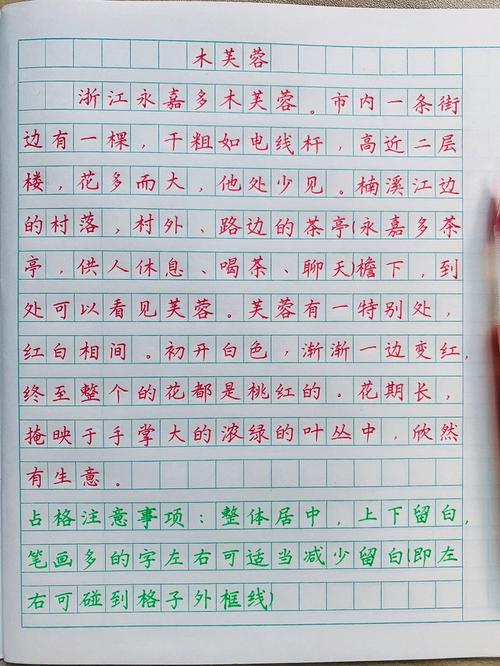 木芙蓉
浙江永嘉多木芙蓉。市内一条街
边有一棵，干粗如电线杆，高近二层
楼，花多而大，他处少见。楠溪江边
的村落，村外、路边的茶亭(永嘉多茶
亭，供人休息、喝茶、聊天)檐下，到
处可以看见芙蓉。芙蓉有一特别处，
红白相间。初开白色，渐渐一边变红，
终至整个的花都是桃红的。花期长，
掩映于手掌大的浓绿的叶丛中，欣然
有生意。
占格注意事项：整体居中，上下留白，
笔画多的字左右可适当减少留白(即左
右可碰到格子外框线)